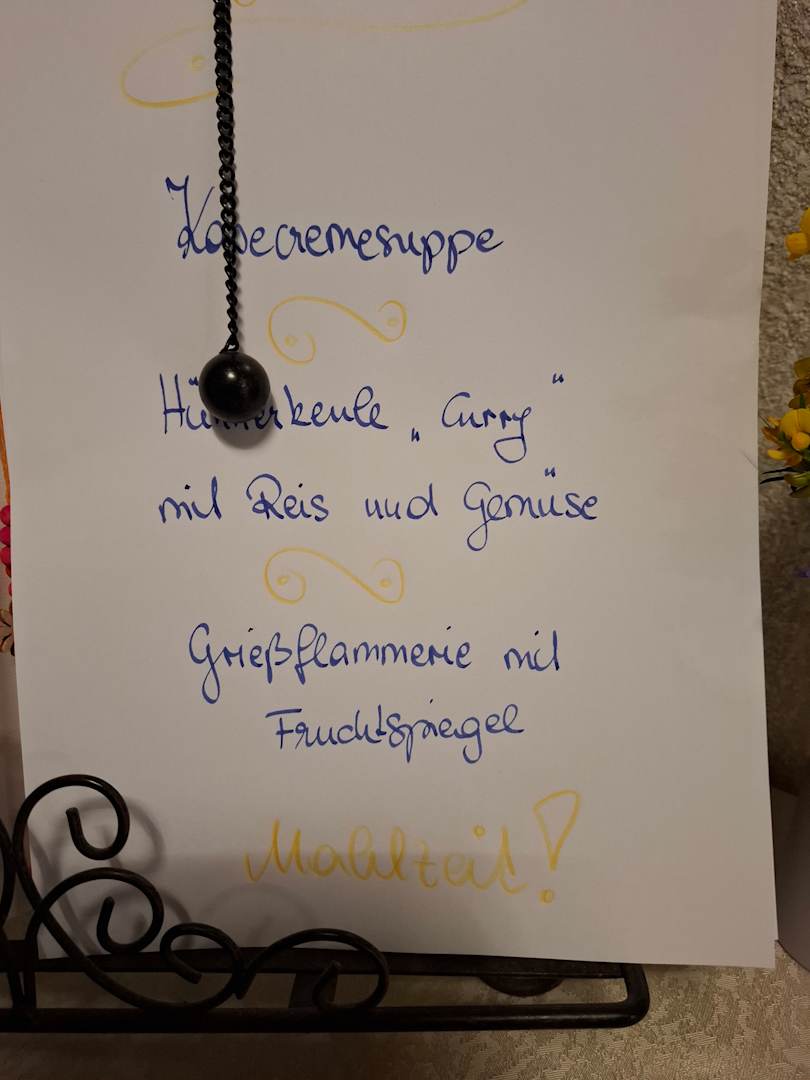 Käsecremesuppe
Hühnerkeule „Curry"
mit Reis und Gemüse
Grießflammerie mit
Fruchtspiegel
Mahlzeit!